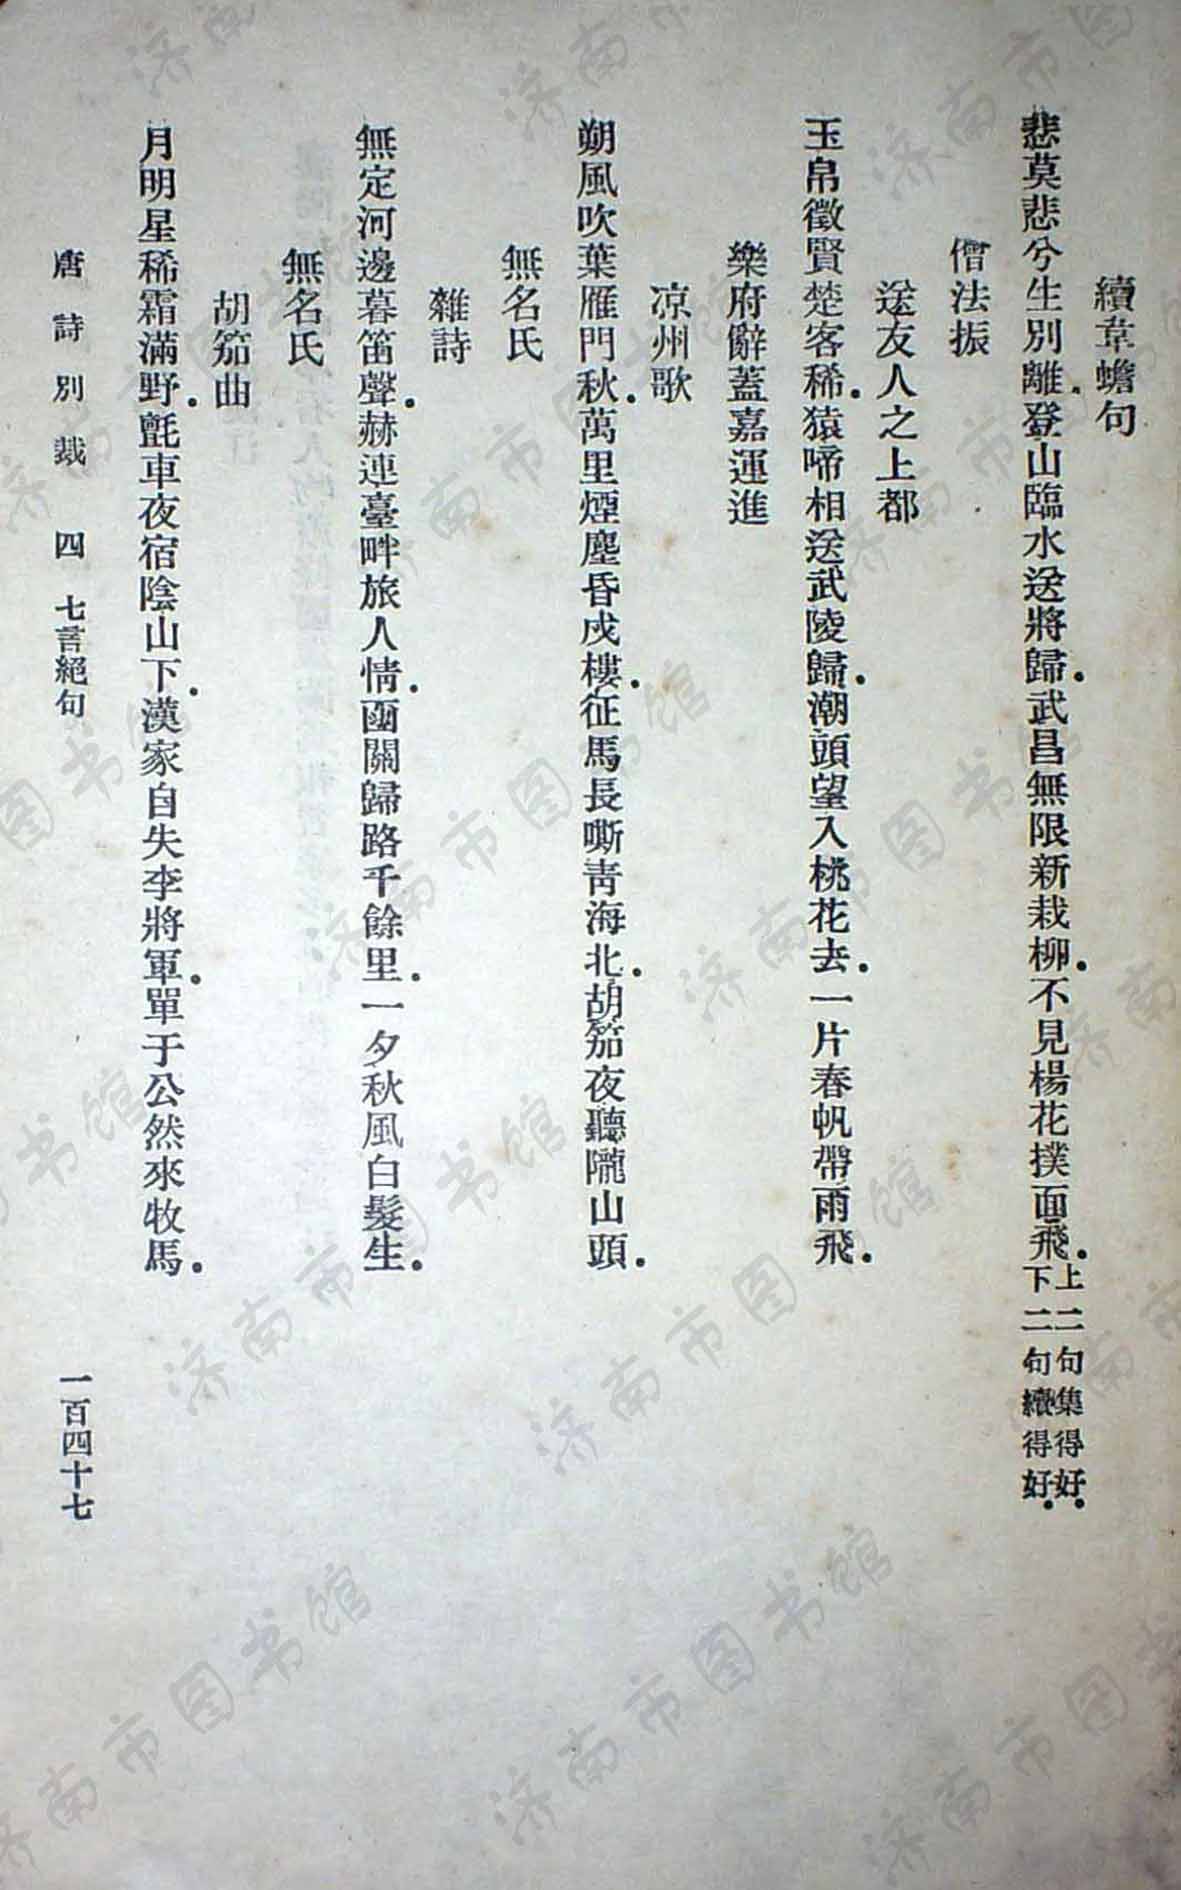 續韋蟾句
悲莫悲兮生別離登山臨水送將歸武昌無限新栽柳不見楊花撲面飛
上二句集得好
下二句續得好
僧法振
送友人之上都
玉帛徵賢楚客稀猿啼相送武陵歸潮頭望入桃花去一片春帆帶雨飛
樂府辭蓋嘉運進
凉州歌
朔風吹葉雁門秋萬里煙塵昏戍樓征馬長嘶靑海北胡笳夜聽隴山頭
無名氏
雜詩
無定河邊暮笛聲赫連臺畔旅人情函關歸路千餘里一夕秋風白髮生
無名氏
胡笳曲
月明星稀霜滿野氈車夜宿陰山下漢家自失李將軍單于公然來牧馬
唐詩別裁 四 七言絕句 一百四十七
济南市图书馆